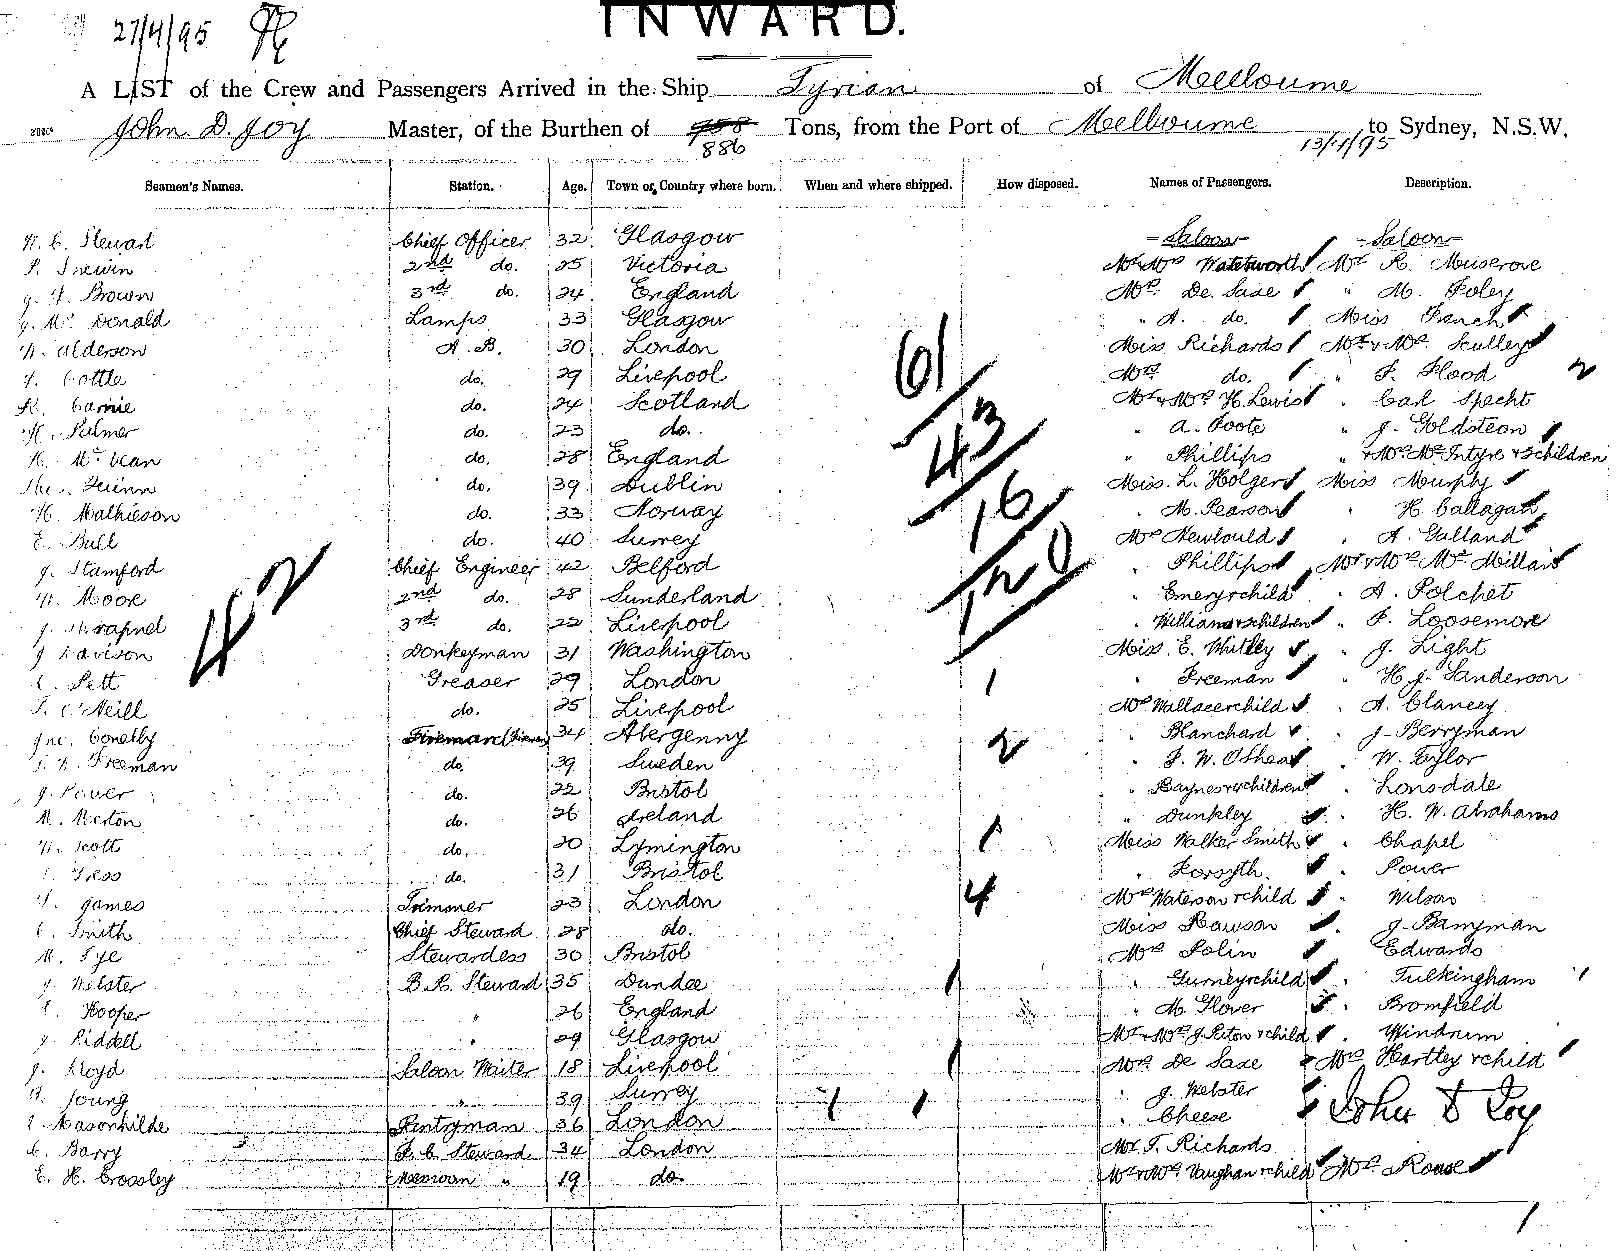 27/4/95
INWARD.
A LIST of the Crew and Passengers Arrived in the Ship Tyrian of Melbourne
John D. Joy Master, of the Burthen of 958 886 Tons, from the Port of Melbourne to Sydney, N.S.W.
13/4/95
Seamen's Names. Station. Age. Town or Country where born. When and where shipped. How disposed. Names of Passengers. Description.
Stewart Chief Officer 32 Glasgow - Saloon - - Saloon -
2nd do. 25 Victoria Mr & Mrs Watesworth Mr R. Musgrove
Brown 3rd do. 24 England Mr. De Saxe " M. Foley
J. Mc Donald Lamps 33 Glasgow " A. do. Miss French
Alderson A.B. 30 London Miss Richards Mr & Mrs Sculley
Cottle do. 29 Liverpool Mrs do. " F. Flood 2
do. 24 Scotland Mr & Mrs H. Lewis " Carl Specht
H. Palmer do. 23 do. " A. Foote " J. Goldstean
do. 28 England " Phillips " & Mrs McIntyre & 3 children
Quinn do. 39 Dublin Miss L. Holger Miss Murphy
H. Mathieson do. 33 Norway " M. Pearson " H. Callagan
E. Bull do. 40 Surrey Mrs Newbould " A. Galland
J. Stamford Chief Engineer 42 Belford " Phillips Mr & Mrs Mc Millan
Moore 2nd do. 28 Sunderland " Emery & child " A. Polchet
J. Shrapnel 3rd do. 22 Liverpool " Williams & children " F. Loosemore
J. Davison Donkeyman 31 Washington Miss E. Whitley " J. Light
Pett Greaser 29 London " Freeman " H. J. Sanderson
O'Neill do. 25 Liverpool Mrs Wallace & child " A. Clancey
Jno. Conelly Fireman 34 Abergenny " Blanchard " J. Berryman
Freeman do. 39 Sweden " F. W. O'Shea " W. Taylor
J. Power do. 22 Bristol " Baynes & children " Lonsdale
M. Merton do. 26 Ireland " Dunkley " H. W. Abrahams
Scott do. 20 Lymington Miss Walker Smith " Chapel
do. 31 Bristol " Forsyth " Power
James Trimmer 23 London Mrs Waterson & child " Wilson
Smith Chief Steward 28 do. Miss Rawson " J. Barryman
M. Tye Stewardess 30 Bristol Mrs Polin " Edwards
J. Webster B.R. Steward 35 Dundee " Gurney & child " Tulkingham
Hooper " 26 England " M. Glover " Bromfield
J. Riddell " 29 Glasgow Mr & Mrs J. Paton & child " Windrum
J. Lloyd Saloon Waiter 18 Liverpool Mrs De Saxe Mrs Hartley & child
Young " 39 Surrey " J. Webster
Masonhilde Pantryman 36 London " Cheese John D Joy
C. Barry F.C. Steward 34 London Mr T. Richards
E. H. Crossley Messroom " 19 do. Mr & Mrs Vaughan & child Mrs Rouse
42
61
43
16
120
1
2
1
4